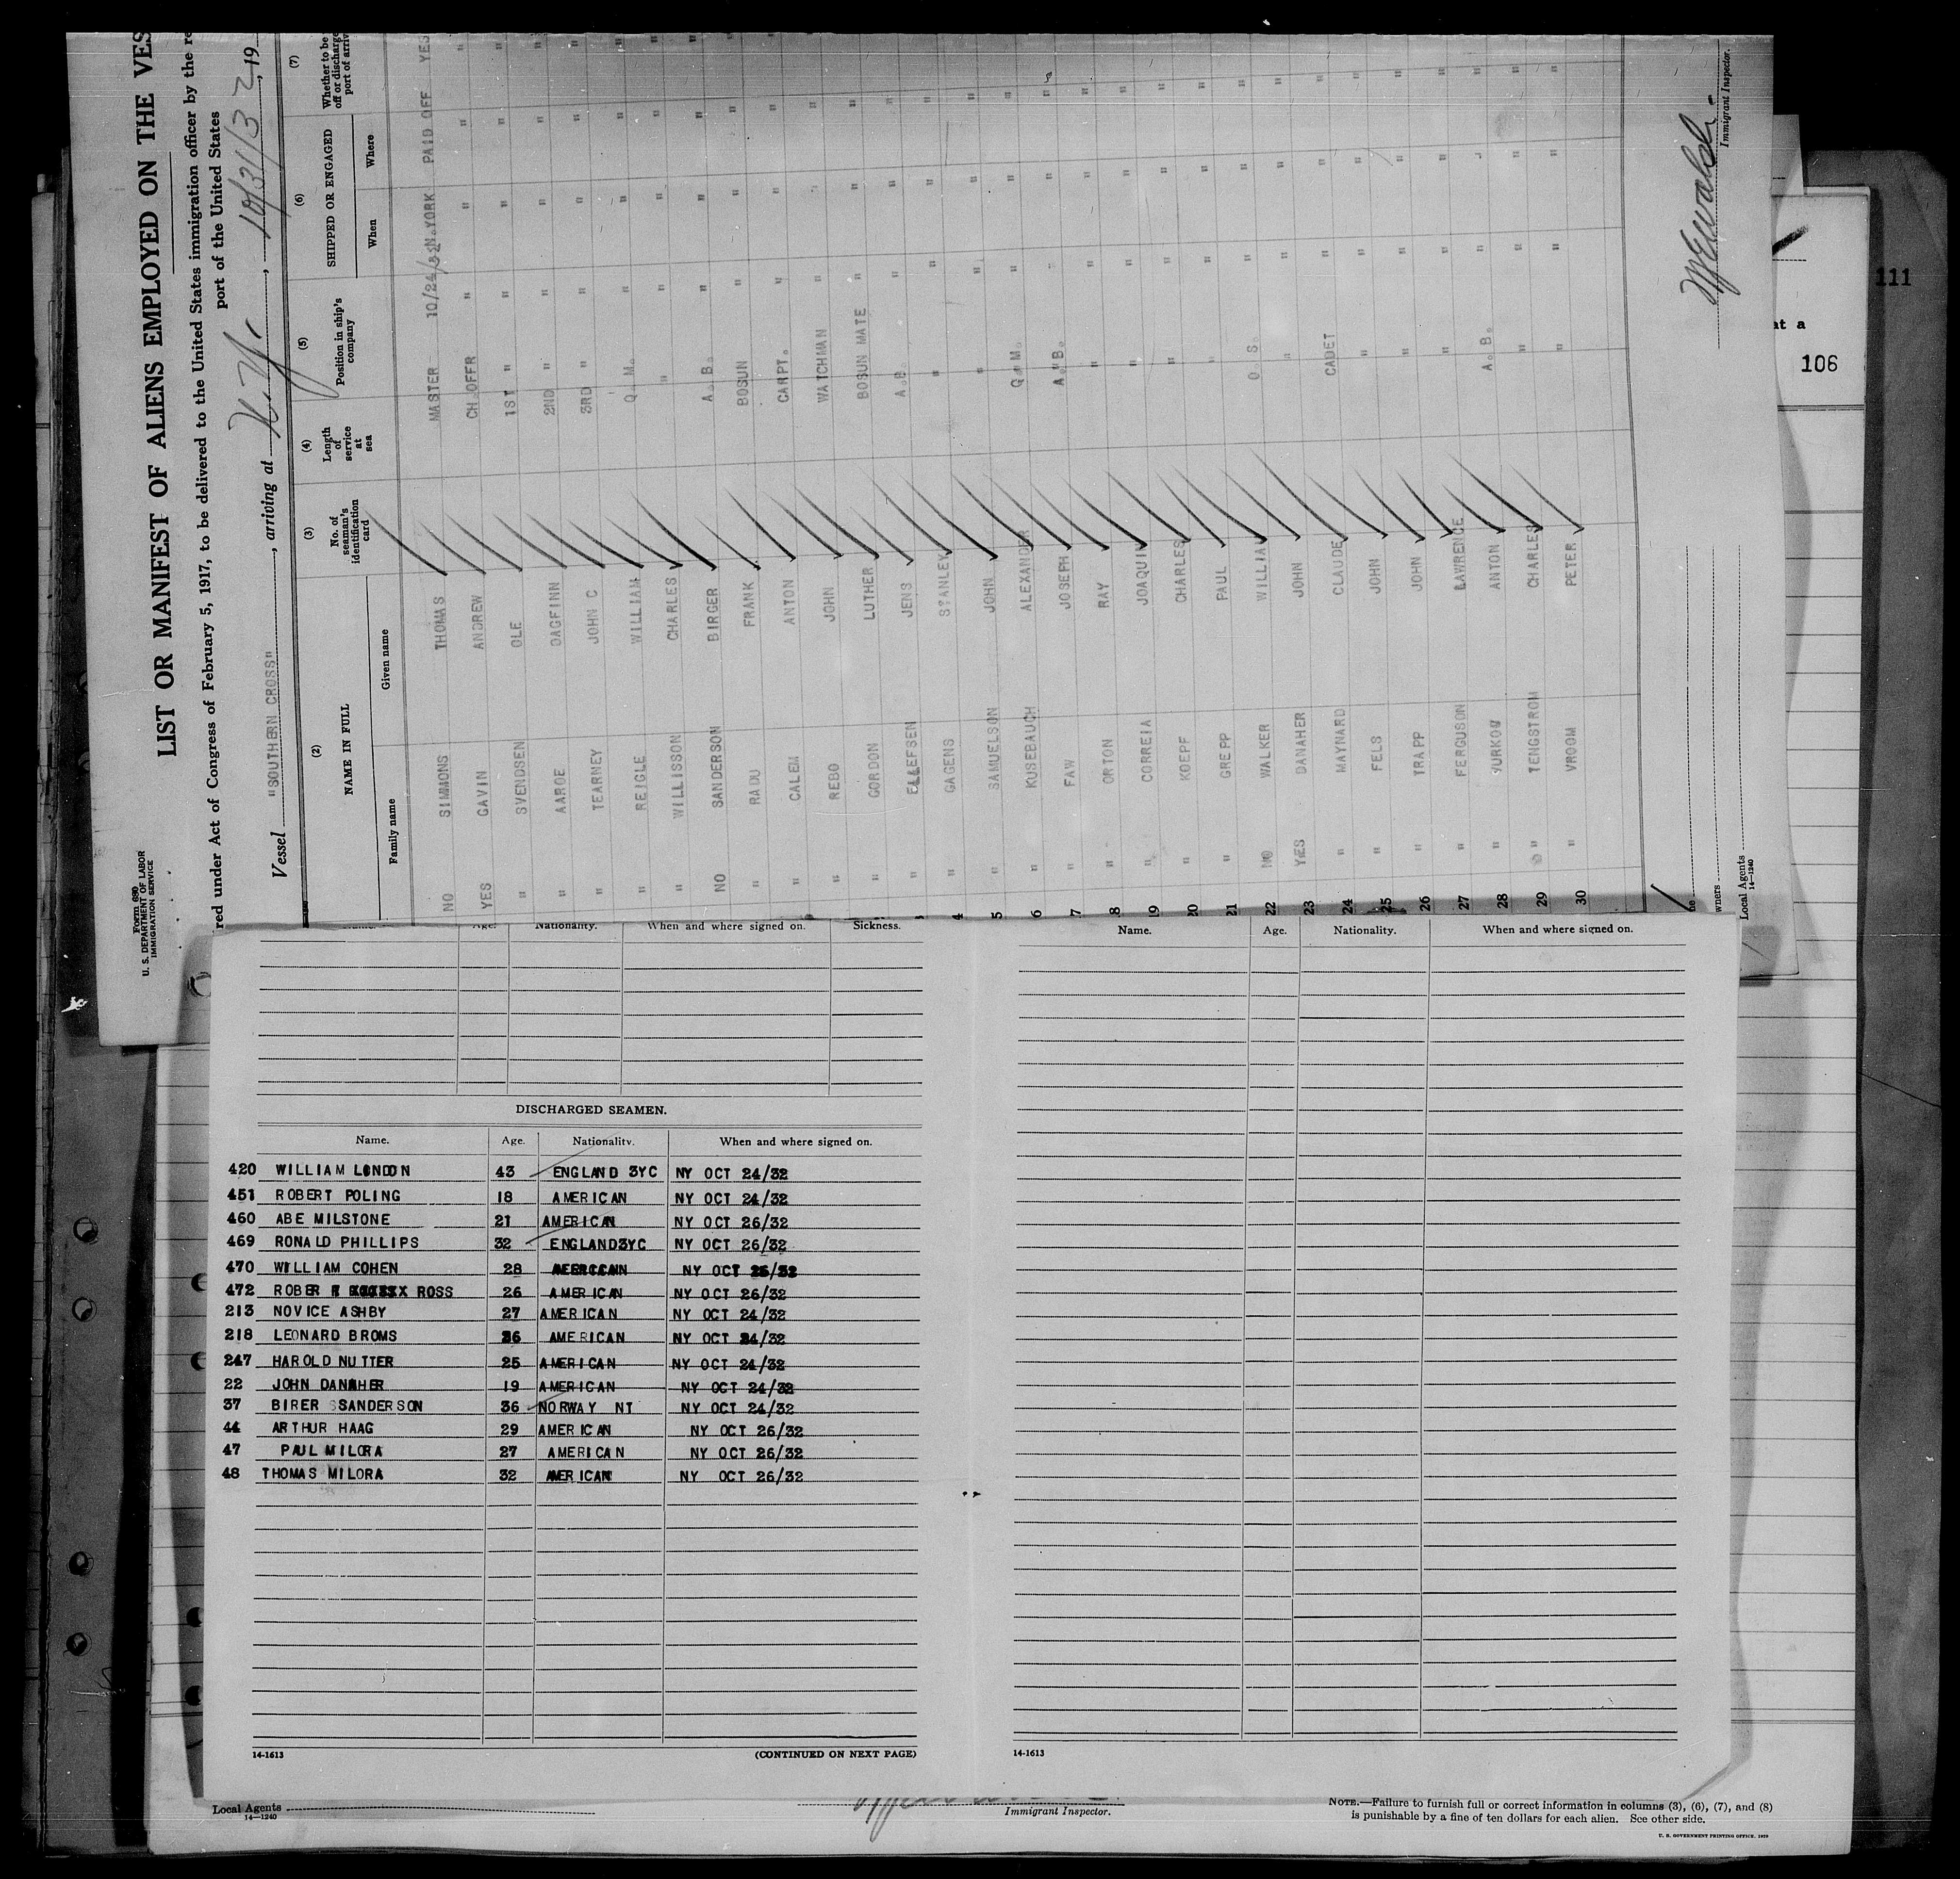 Form 680
U. S. DEPARTMENT OF LABOR
IMMIGRATION SERVICE
LIST OR MANIFEST OF ALIENS EMPLOYED ON THE VES
red under Act of Congress of February 5, 1917, to be delivered to the United States immigration officer by the re
port of the United States
Vessel "SOUTHERN CROSS", arriving at N.Y., 10/31/32, 19
(2) (3) (4) (5) (6) (7)
NAME IN FULL No. of seaman's identification card Length of service at sea Position in ship's company SHIPPED OR ENGAGED Whether to be off or discharge port of arriv
Family name Given name When Where
NO SIMMONS THOMAS MASTER 10/24/32 N.YORK PAID OFF YES
YES GAVIN ANDREW CH.OFFR " " " "
" SVENDSEN OLE 1ST " " " " "
" AAROE DAGFINN 2ND " " " " "
" TEARNEY JOHN C 3RD " " " " "
" REIGLE WILLIAM Q.M. " " " "
" WILLISSON CHARLES " " " " "
NO SANDERSON BIRGER A.B. " " " "
" RADU FRANK BOSUN " " " "
" CALEM ANTON CARPT. " " " "
" REBO JOHN WATCHMAN " " " "
" GORDON LUTHER BOSUN MATE " " " "
" ELLEFSEN JENS A.B. " " " "
4 " GAGENS STANLEY " " " " "
5 " SAMUELSON JOHN " " " " "
6 " KUSEBAUCH ALEXANDER Q.M. " " " "
7 " FAW JOSEPH A.B. " " " "
18 " ORTON RAY " " " " "
19 " CORREIA JOAQUIN " " " " "
20 " KOEPF CHARLES " " " " "
21 " GREPP PAUL " " " " "
22 NO WALKER WILLIAM O.S. " " " "
23 YES DANAHER JOHN " " " " "
24 " MAYNARD CLAUDE CADET " " " "
25 " FELS JOHN " " " " "
26 " TRAPP JOHN " " " " "
27 " FERGUSON LAWRENCE " " " " "
28 " YURKOW ANTON A.B. " " " "
29 " TENGSTROM CHARLES " " " " "
30 " VROOM PETER " " " " "
Immigrant Inspector.
wners
Local Agents
14—1240
111
at a
106
Name. Age. Nationality. When and where signed on. Sickness.
Name. Age. Nationality. When and where signed on.
DISCHARGED SEAMEN.
Name. Age. Nationality. When and where signed on.
420 WILLIAM LONDON 43 ENGLAND 3YC NY OCT 24/32
451 ROBERT POLING 18 AMERICAN NY OCT 24/32
460 ABE MILSTONE 21 AMERICAN NY OCT 26/32
469 RONALD PHILLIPS 32 ENGLAND3YC NY OCT 26/32
470 WILLIAM COHEN 28 AMERICAN NY OCT 26/32
472 ROBERT ROSS 26 AMERICAN NY OCT 26/32
213 NOVICE ASHBY 27 AMERICAN NY OCT 24/32
218 LEONARD BROMS 36 AMERICAN NY OCT 24/32
247 HAROLD NUTTER 25 AMERICAN NY OCT 24/32
22 JOHN DANAHER 19 AMERICAN NY OCT 24/32
37 BIRER SANDERSON 36 NORWAY NT NY OCT 24/32
44 ARTHUR HAAG 29 AMERICAN NY OCT 26/32
47 PAUL MILORA 27 AMERICAN NY OCT 26/32
48 THOMAS MILORA 32 AMERICAN NY OCT 26/32
14-1613
(CONTINUED ON NEXT PAGE)
14-1613
Local Agents
14—1240
Immigrant Inspector.
NOTE.—Failure to furnish full or correct information in columns (3), (6), (7), and (8)
is punishable by a fine of ten dollars for each alien. See other side.
U. S. GOVERNMENT PRINTING OFFICE.